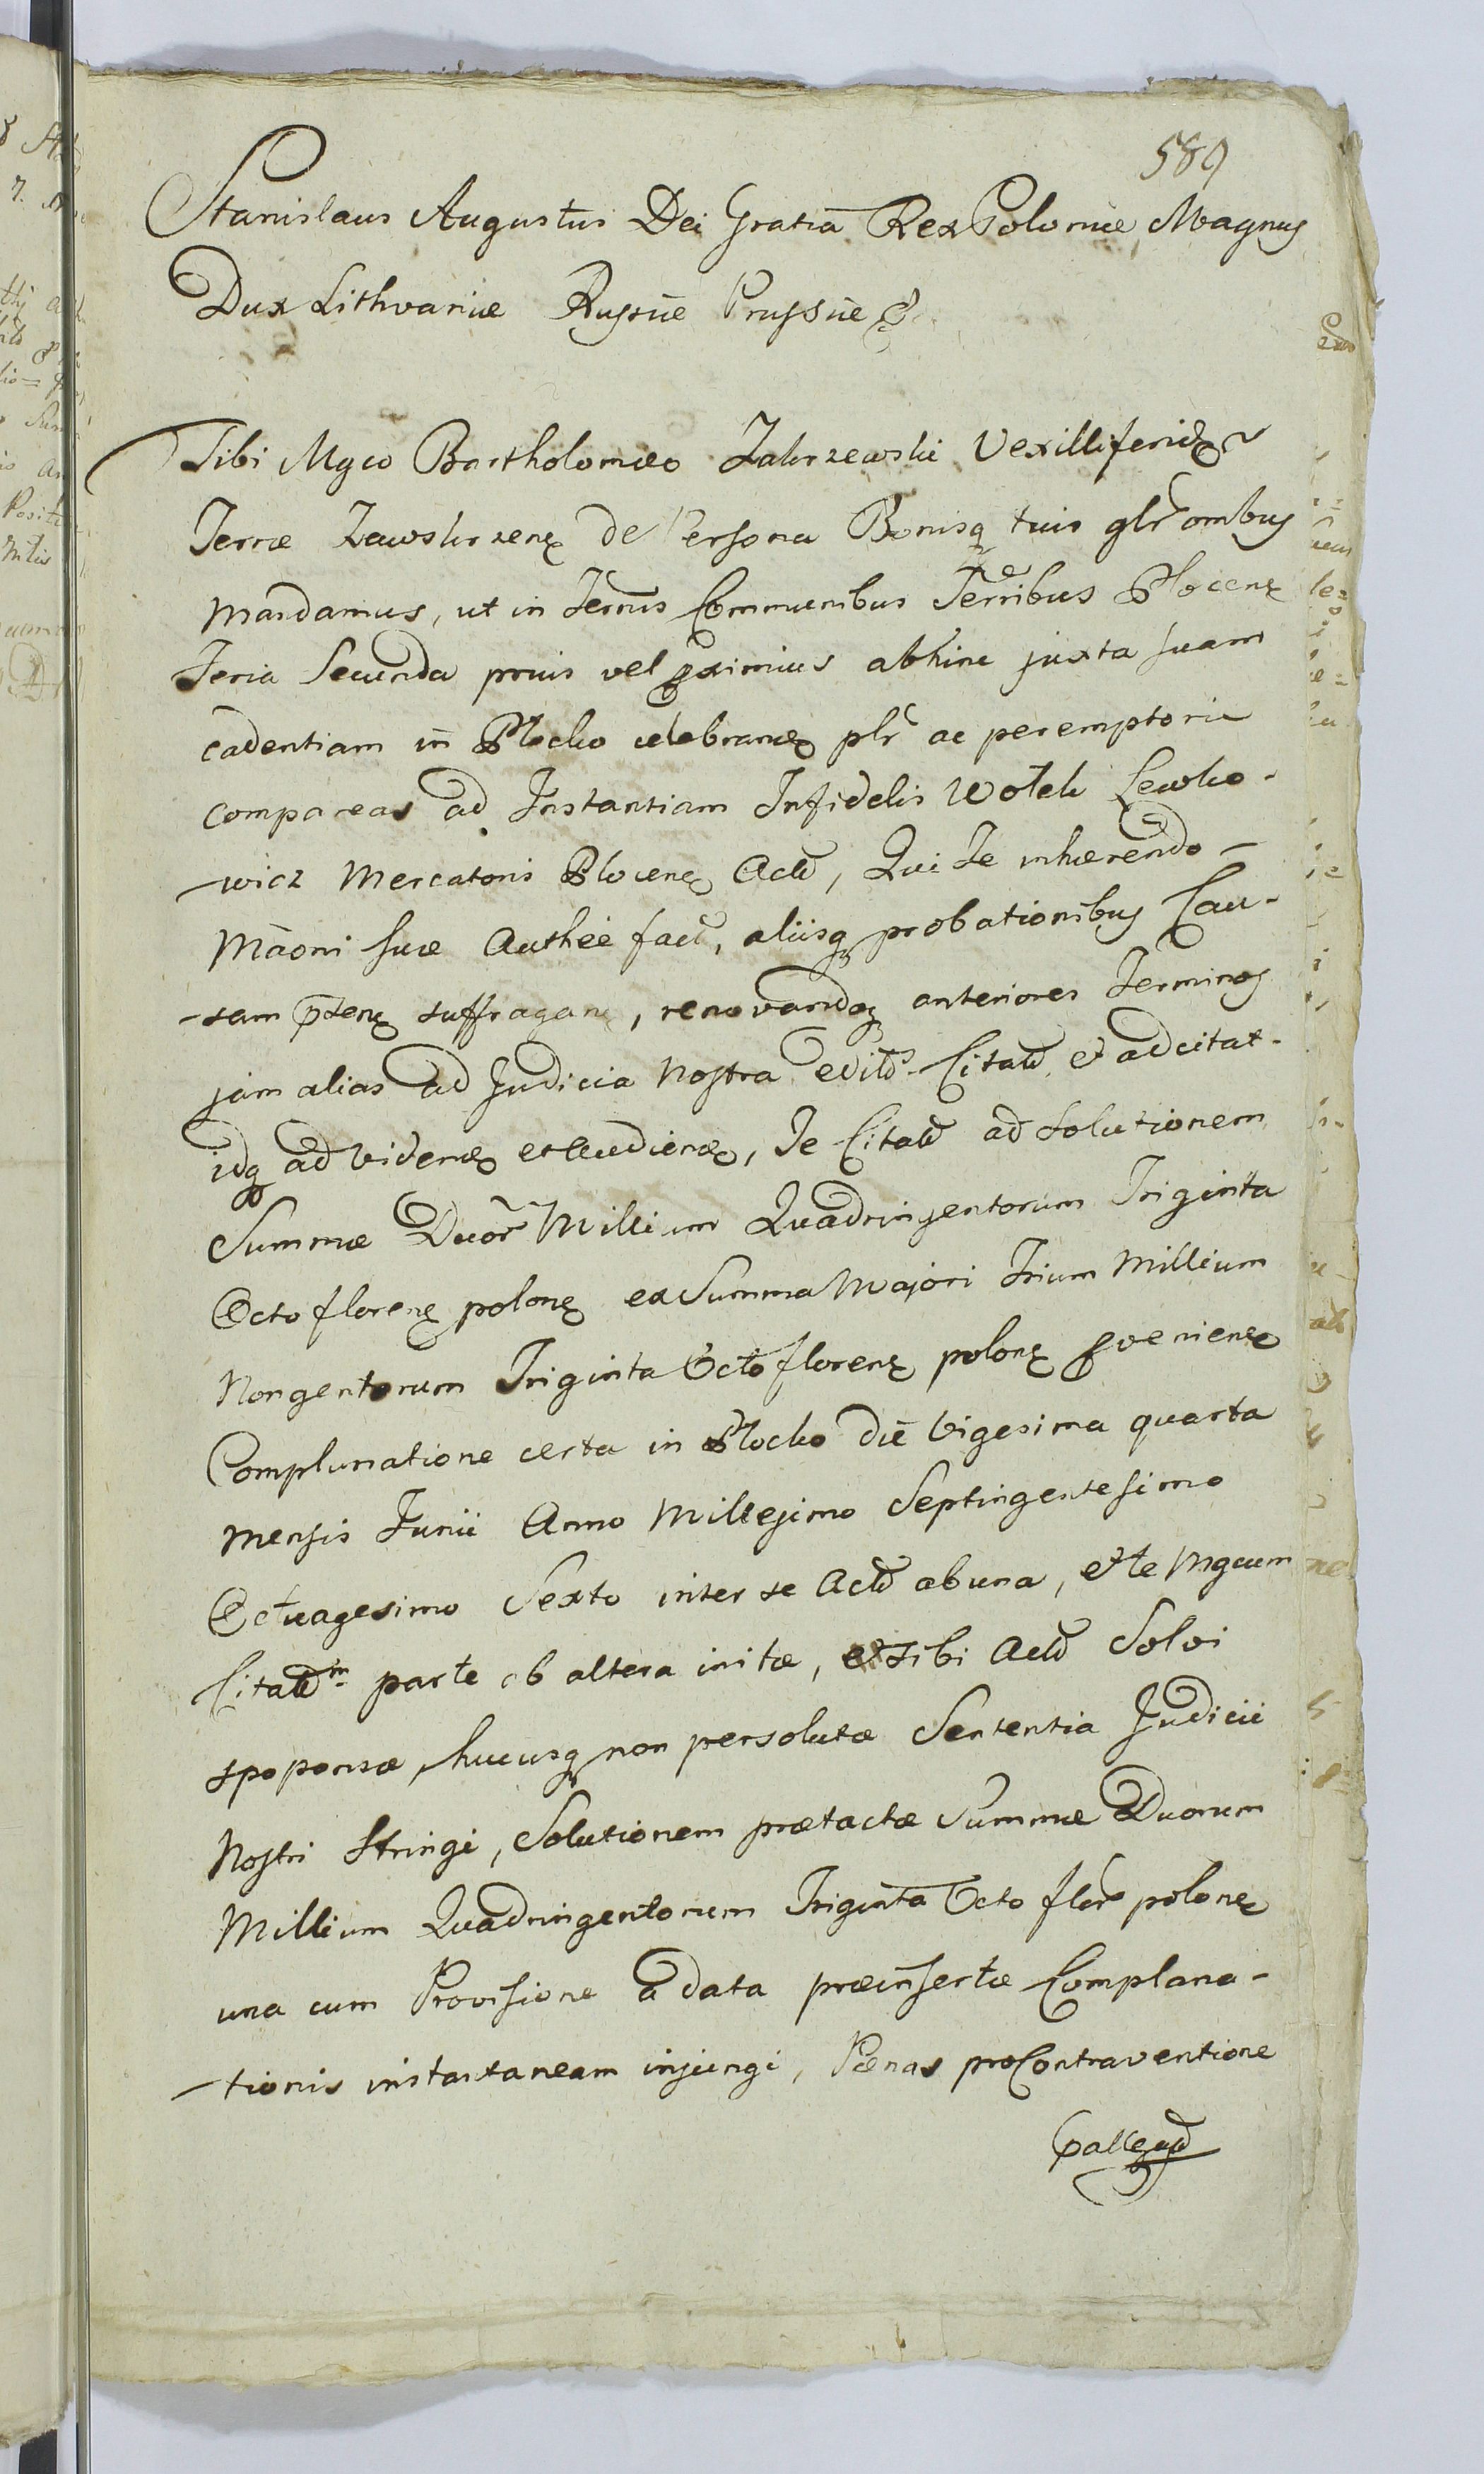 589
Stanislaus Augustus Dei Gratia Rex Poloniæ, Magnus
Dux Lithvaniæ Russiæ Prussiæ &
Tibi Mgco Bartholomæo Zakrzewski Vexillifero
Terræ Zawskrzen de Persona Bonisq tuis glr ombus
Mandamus, ut in Termis Communibus Terribus Plocen
Feria Secunda prius vel pximius abhinc juxta suam
cadentiam in Plocko celebran plr ac peremptorie
compareas ad Instantiam Infidelis Wolek Lewko-
-wicz Mercatoris Plocen Act, Qui Te inhærendo
Mãoni suæ Authee fact, aliisq probationibus Cau-
-sam pten suffragan, renovandoq anteriores Terminos
jam alias ad Judicia Nostra edit Citat et adcitat
idq ad Viden et audien, Te Citat ad solutionem
Summæ Duor Millium Quadringentorum Triginta
Octo floren polon ex Summa Majori Trium Millium
Nongentorum Triginta Octo floren polon pvenien
Complanatione certa in Plocko die Vigesima quarta
Mensis Junii Anno Millesimo Septingentesimo
Octuagesimo Sexto inter se Act ab una, et te Mgcum
Citatm parte ab altera initæ, et sibi Act Solvi
sponsæ, hucusq non persolutæ Sententia Judicii
Nostri Stringi, Solutionem prætactæ Summæ Duorum
Millium Quadringentorum Triginta Octo flor polon
una cum Provisione a data præinsertæ Complana-
-tionis instantaneam injungi, Pænas pro Contraventione